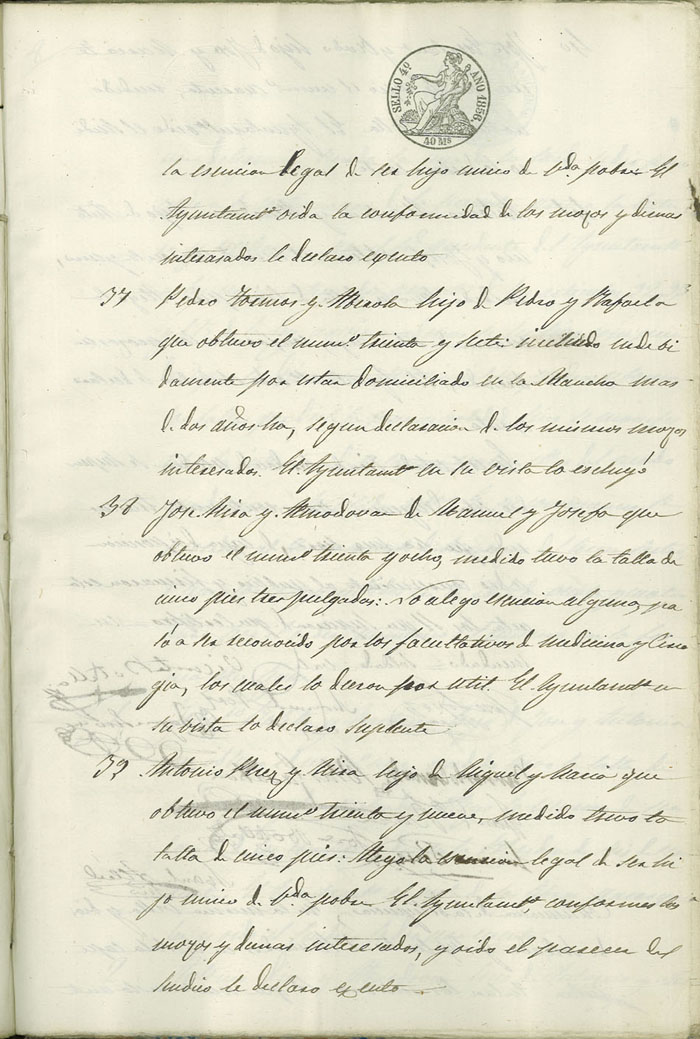 SELLO 4º AÑO 1856.
40 Ms
la esencion legal de ser hijo unico de vda pobre. El
Ayuntamto oida la conformidad de los mozos y demas
interesados le declaro exento
37 Pedro Tormos y hijo de Pedro y Rafaela
que obtuvo el numo treinta y siete: incluido indebi
damente por estar domiciliado en la Mancha mas
de dos años ha, segun declaracion de los mismos mozos
interesados. El Ayuntamto en su vista lo escluyó
38 Jose Mira y Almodovar de Manuel y Josefa que
obtuvo el numo treinta y ocho, medido tuvo la talla de
cinco pies tres pulgadas: No alego esencion alguna, pa
só a ser reconocido por los facultativos de medicina y Ciru
gia, los cuales lo dieron por util. El Ayuntamto en
su vista lo declaro suplente
39 Antonio Perez y Mira hijo de Miguel y Maria que
obtuvo el numo treinta y nueve, medido tuvo la
talla de cinco pies: Alego la esencion legal de ser hi
jo unico de vda pobre El Ayuntamto, conformes los
mozos y demas interesados, y oido el parecer del
Sindico le declaro exento.